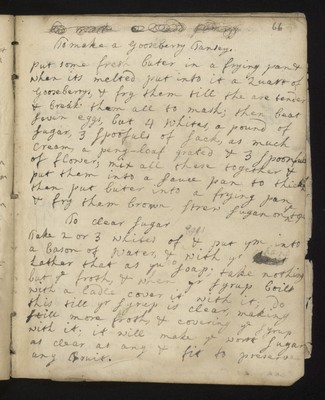 66
To make a Gooseberry Tansey.
put some fresh buter in a frying pan &
when its melted put into it a Quart of
Gooseberys, & fry them till the are tender
& break them all to mash; then beat
seven eggs, but 4 whites a pound of
sugar, 3 spoofuls of sack, as much
Cream, a peny-loaf grated & 3 spoonfuls
of flower, mix all these together &
put them into a sauce pan to thicke
then put buter into a frying pan
& fry them brown strew sugar on ye top
To clear sugar
Take 2 or 3 whites of eggs & put ym into
a bason of water, & with yr
Lather that as yu do soap: take nothing
but ye froth, & when yr syrup boils
with a Ladle cover it with it, Do
this till yr syrup is clear, making
still more froth, & covering ye syrup
with it. it will make ye worst sugar
as clear as any & fit to preserve
any Fruit.